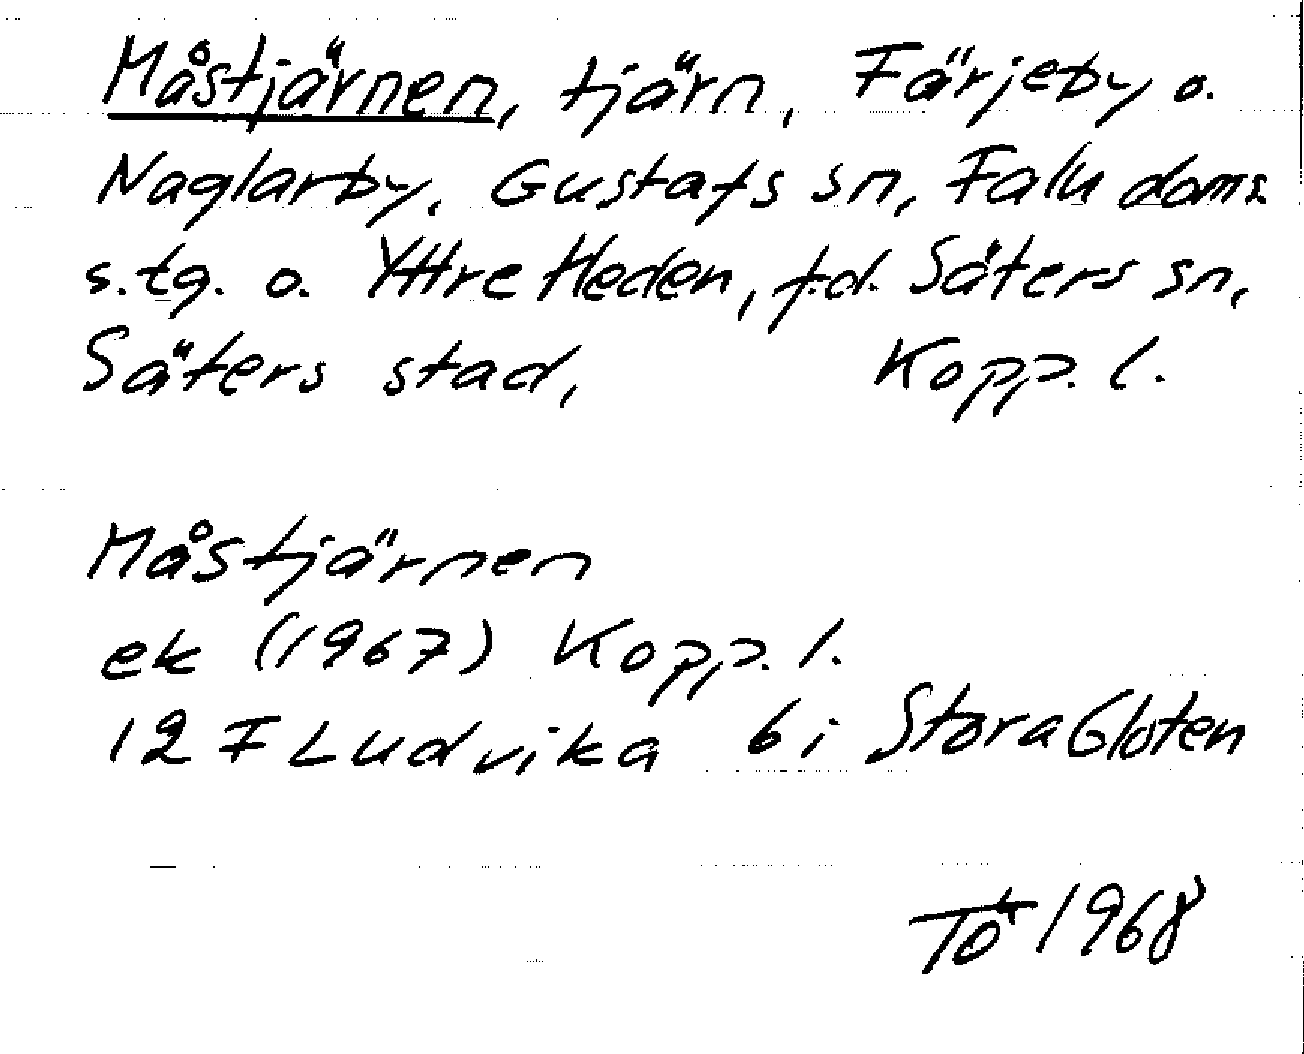 Måstjärnen, tjärn, Färjeby o.
Naglarby, Gustafs sn, Falu doms.
s. tg. o. Yttre Heden, f.d. Säters sn,
Säters stad, Kopp. l.
Måstjärnen
ek (1967) Kopp. l.
12 F Ludvika 6 i Stora Gloten
TÖ 1968